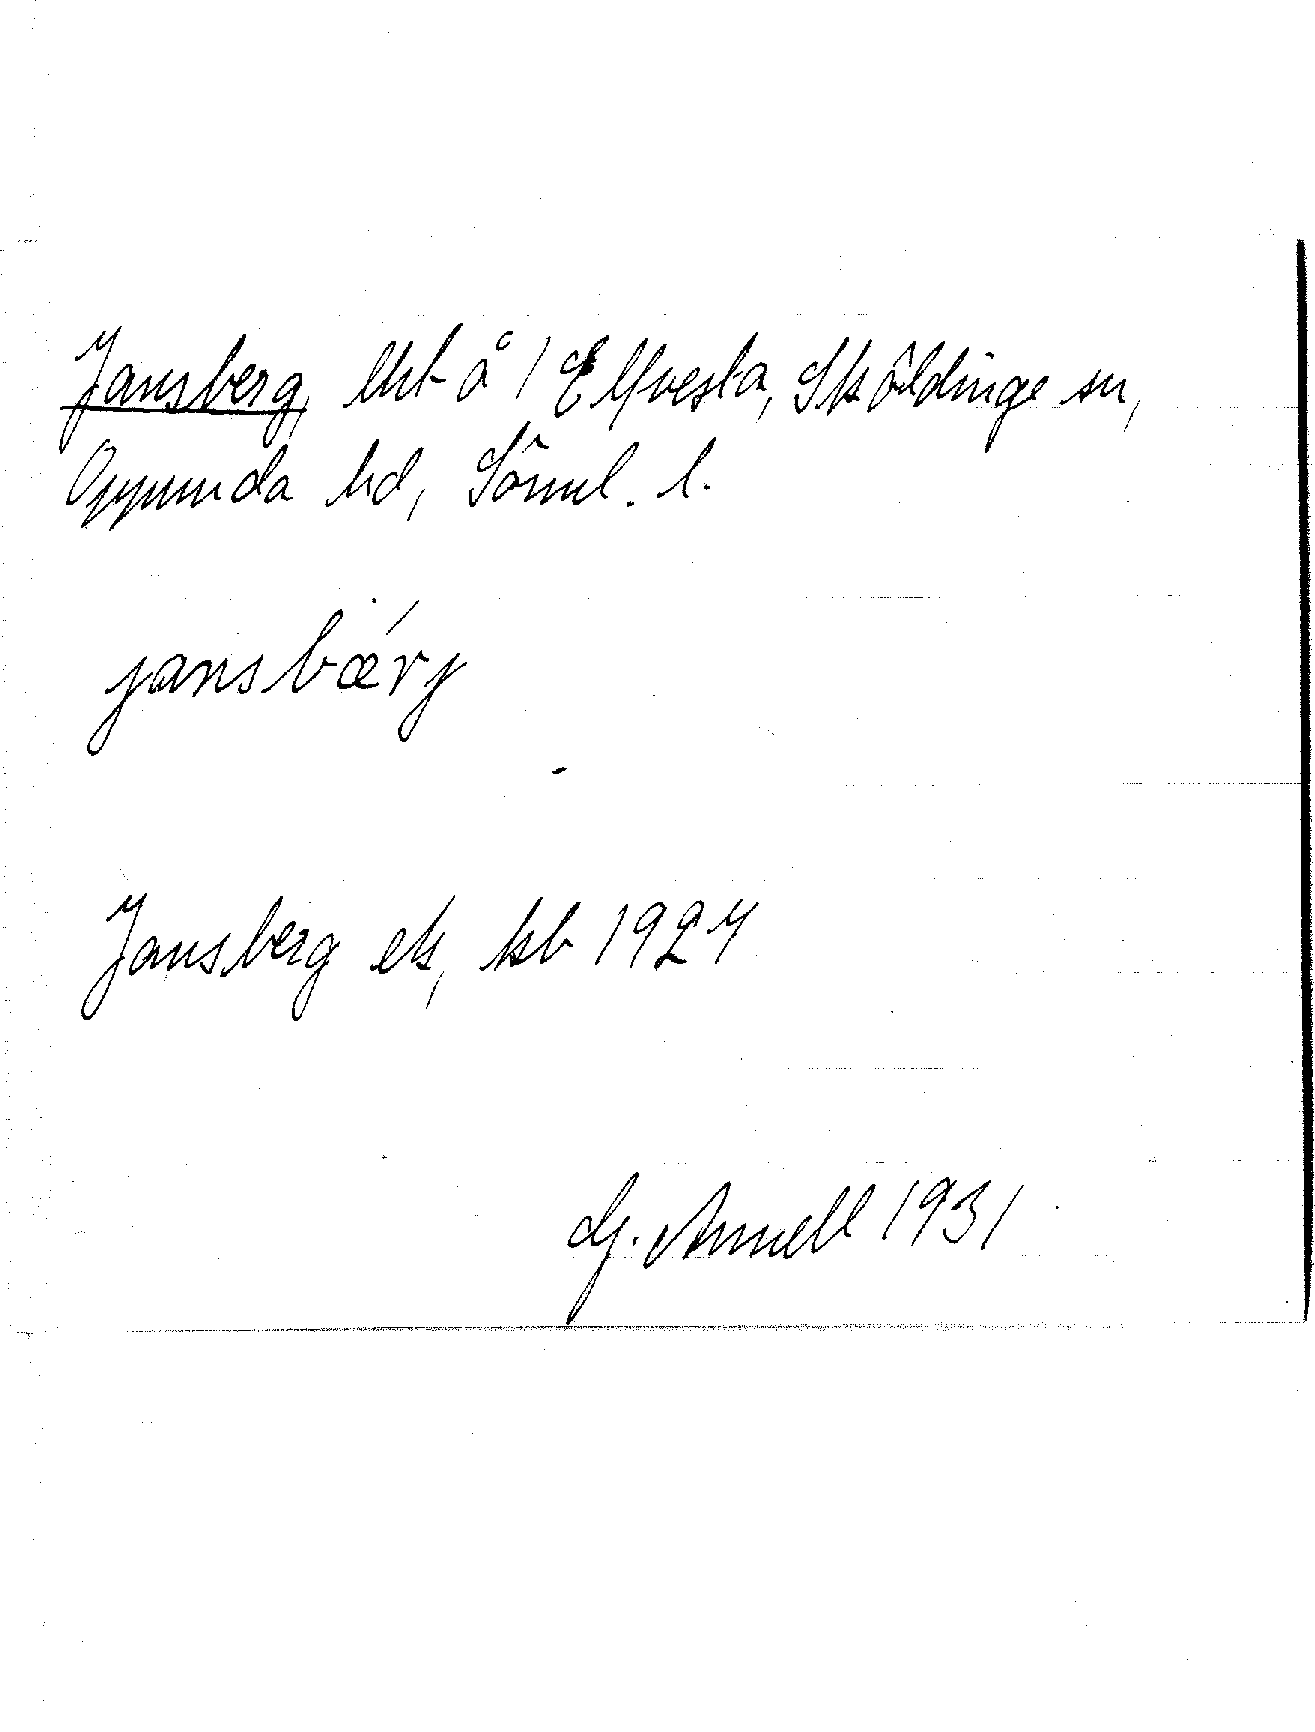 Jansberg, lht å 1 Elfvesta, Sköldinge sn,
Oppunda hd, Söml. l.
jansbǽrj
Jansberg ek, kb 1927
G. Annell 1931